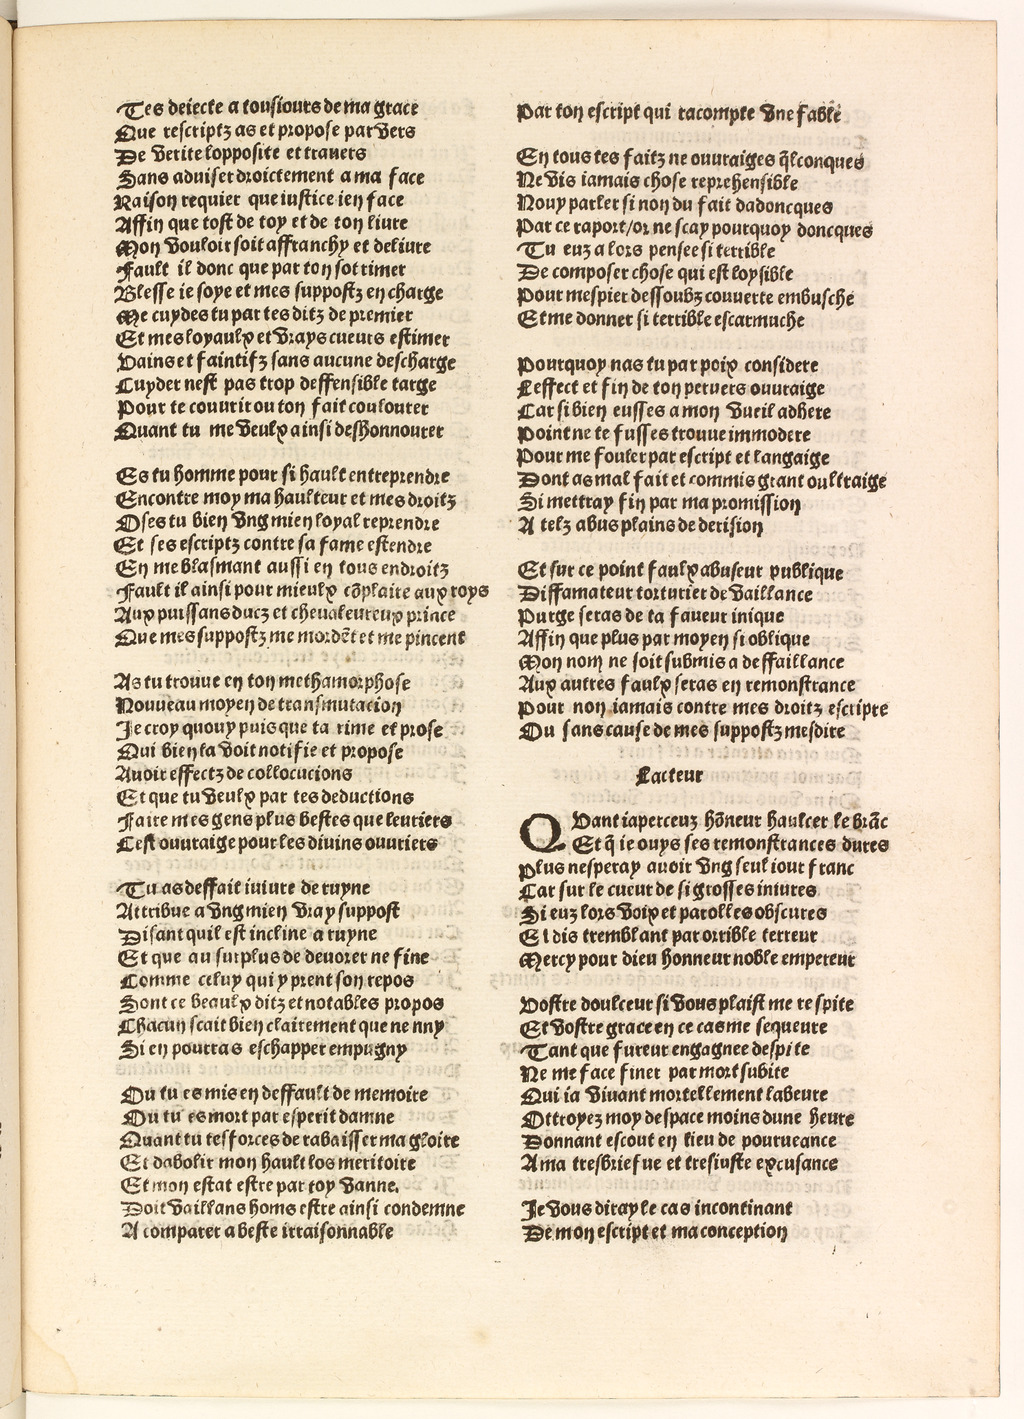 Tes deiecte a tousiours de ma grace
Que rescriptz as et propose par vers
De verite lopposite et trauers
Sans aduiser droictement a ma face
Raison requier que iustice ien face
Affin que tost de toy et de ton liure
Mon vouloir soit affranchy et deliure
Fault il donc que par ton sot rimer
Blesse ie soye et mes suppostz en charge
Me cuydes tu par tes ditz de premier
Et mes loyaulx et vrays cueurs estimer
Vains et faintifz sans aucune descharge
Cuyder nest pas trop deffensible targe
Pour te couurir ou ton fait coulourer
Quant tu me veulx ainsi deshonnourer

Es tu homme pour si hault entreprendre
Encontre moy ma haulteur et mes droitz
Oses tu bien vng mien loyal reprendre
Et ses escriptz contre sa fame estendre
En me blasmant aussi en tous endroitz
Fault il ainsi pour mieulx cōplaire aux roys
Aux puissans ducz et cheualeureux prince
Que mes suppostz me mordēt et me pincent

As tu trouue en ton methamorphose
Nouueau moyen de transmutacion
Je croy quouy puis que ta rime et prose
Qui bien la voit notifie et propose
Auoir effectz de collocucions
Et que tu veulx par tes deductions
Faire mes gens plus bestes que leuriers
Cest ouuraige pour les diuins ouuriers

Tu as deffait iuiure de ruyne
Attribue a vng mien vray suppost
Disant quil est incline a ruyne
Et que au surplus de deuorer ne fine
Comme celuy qui y prent son repos
Sont ce beaulx ditz et notables propos
Chacun scait bien clairement que nenny
Si en pourras eschapper empugny

Ou tu es mis en deffault de memoire
Ou tu es mort par esperit damne
Quant tu tesforces de rabaisser ma gloire
Et dabolir mon hault los meritoire
Et mon estat estre par toy vanne.
Doit vaillans homs estre ainsi condemne
A comparer a beste irraisonnable

Par ton escript qui racompte vne fable

En tous tes faitz ne ouuraiges q̄lconques
Ne vis iamais chose reprehensible
Nouy parler si non du fait dadoncques
Par ce raport/or ne scay pourquoy doncques
Tu euz alors pensee si terrible
De composer chose qui est loysible
Pour mespier dessoubz couuerte embusche
Et me donner si terrible escarmuche

Pourquoy nas tu par poix considere
Leffect et fin de ton peruers ouuraige
Car si bien eusses a mon vueil adhere
Point ne te fusses trouue immodere
Pour me fouler par escript et langaige
Dont as mal fait et commis grant oultraige
Si mettray fin par ma promission
A telz abus plains de derision

Et sur ce point faulx abuseur publique
Diffamateur torturier de vaillance
Purge seras de ta faueur inique
Affin que plus par moyen si oblique
Mon nom ne soit submis a deffaillance
Aux autres faulx seras en remonstrance
Pour non iamais contre mes droitz escripre
Ou sans cause de mes suppostz mesdire

Lacteur

QVant iaperceuz hōneur haulcer le brāc
Et q̄ ie ouys ses remonstrances dures
Plus nesperay auoir vng seul iour franc
Car sur le cueur de si grosses iniures
Si euz lors voix et parolles obscures
Et dis tremblant par orrible terreur
Mercy pour dieu honneur noble empereur

Vostre doulceur si vous plaist me respite
Et vostre grace en ce cas me sequeure
Tant que fureur engagnee despite
Ne me face finer par mort subite
Qui ia viuant mortellement labeure
Ottroyez moy despace moins dune heure
Donnant escout en lieu de pourueance
A ma tresbriefue et tresiuste excusance

Je vous diray le cas incontinant
De mon escript et ma conception